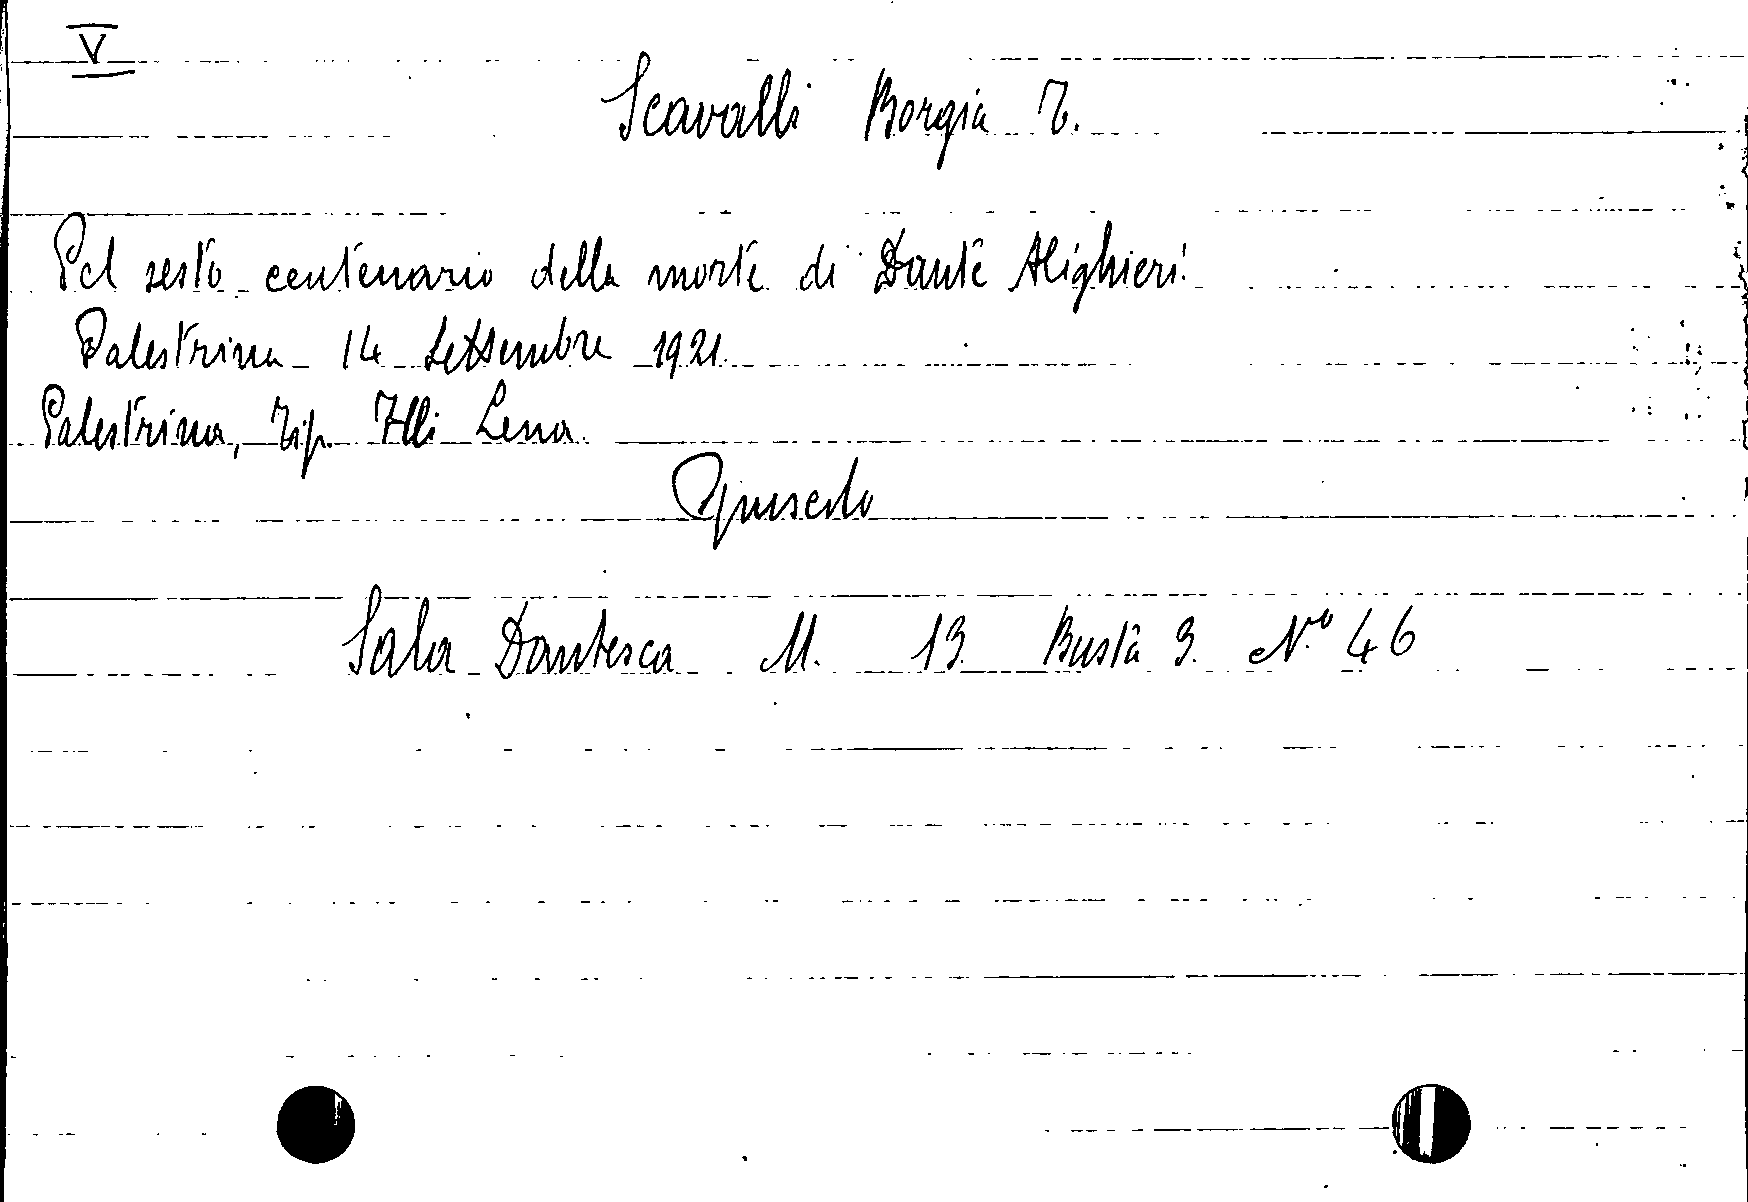 V
Scavalli Borgia T.
Pel sesto centenario della morte di Dante Alighieri.
Palestrina 14 Settembre 1921.
Palestrina, Tip. Flli Lena.
Opuscolo
Sala Dantesca M. 13. Busta 3. Nº 46